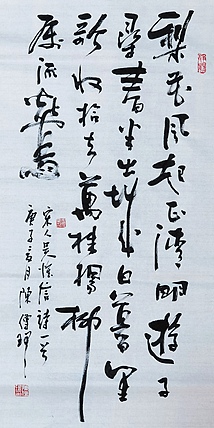 梨花風起正清明遊子
尋春半出城日暮笙
歌收拾去萬株楊柳
屬流鶯
宋人吳惟信詩一首
庚子三月陳傳